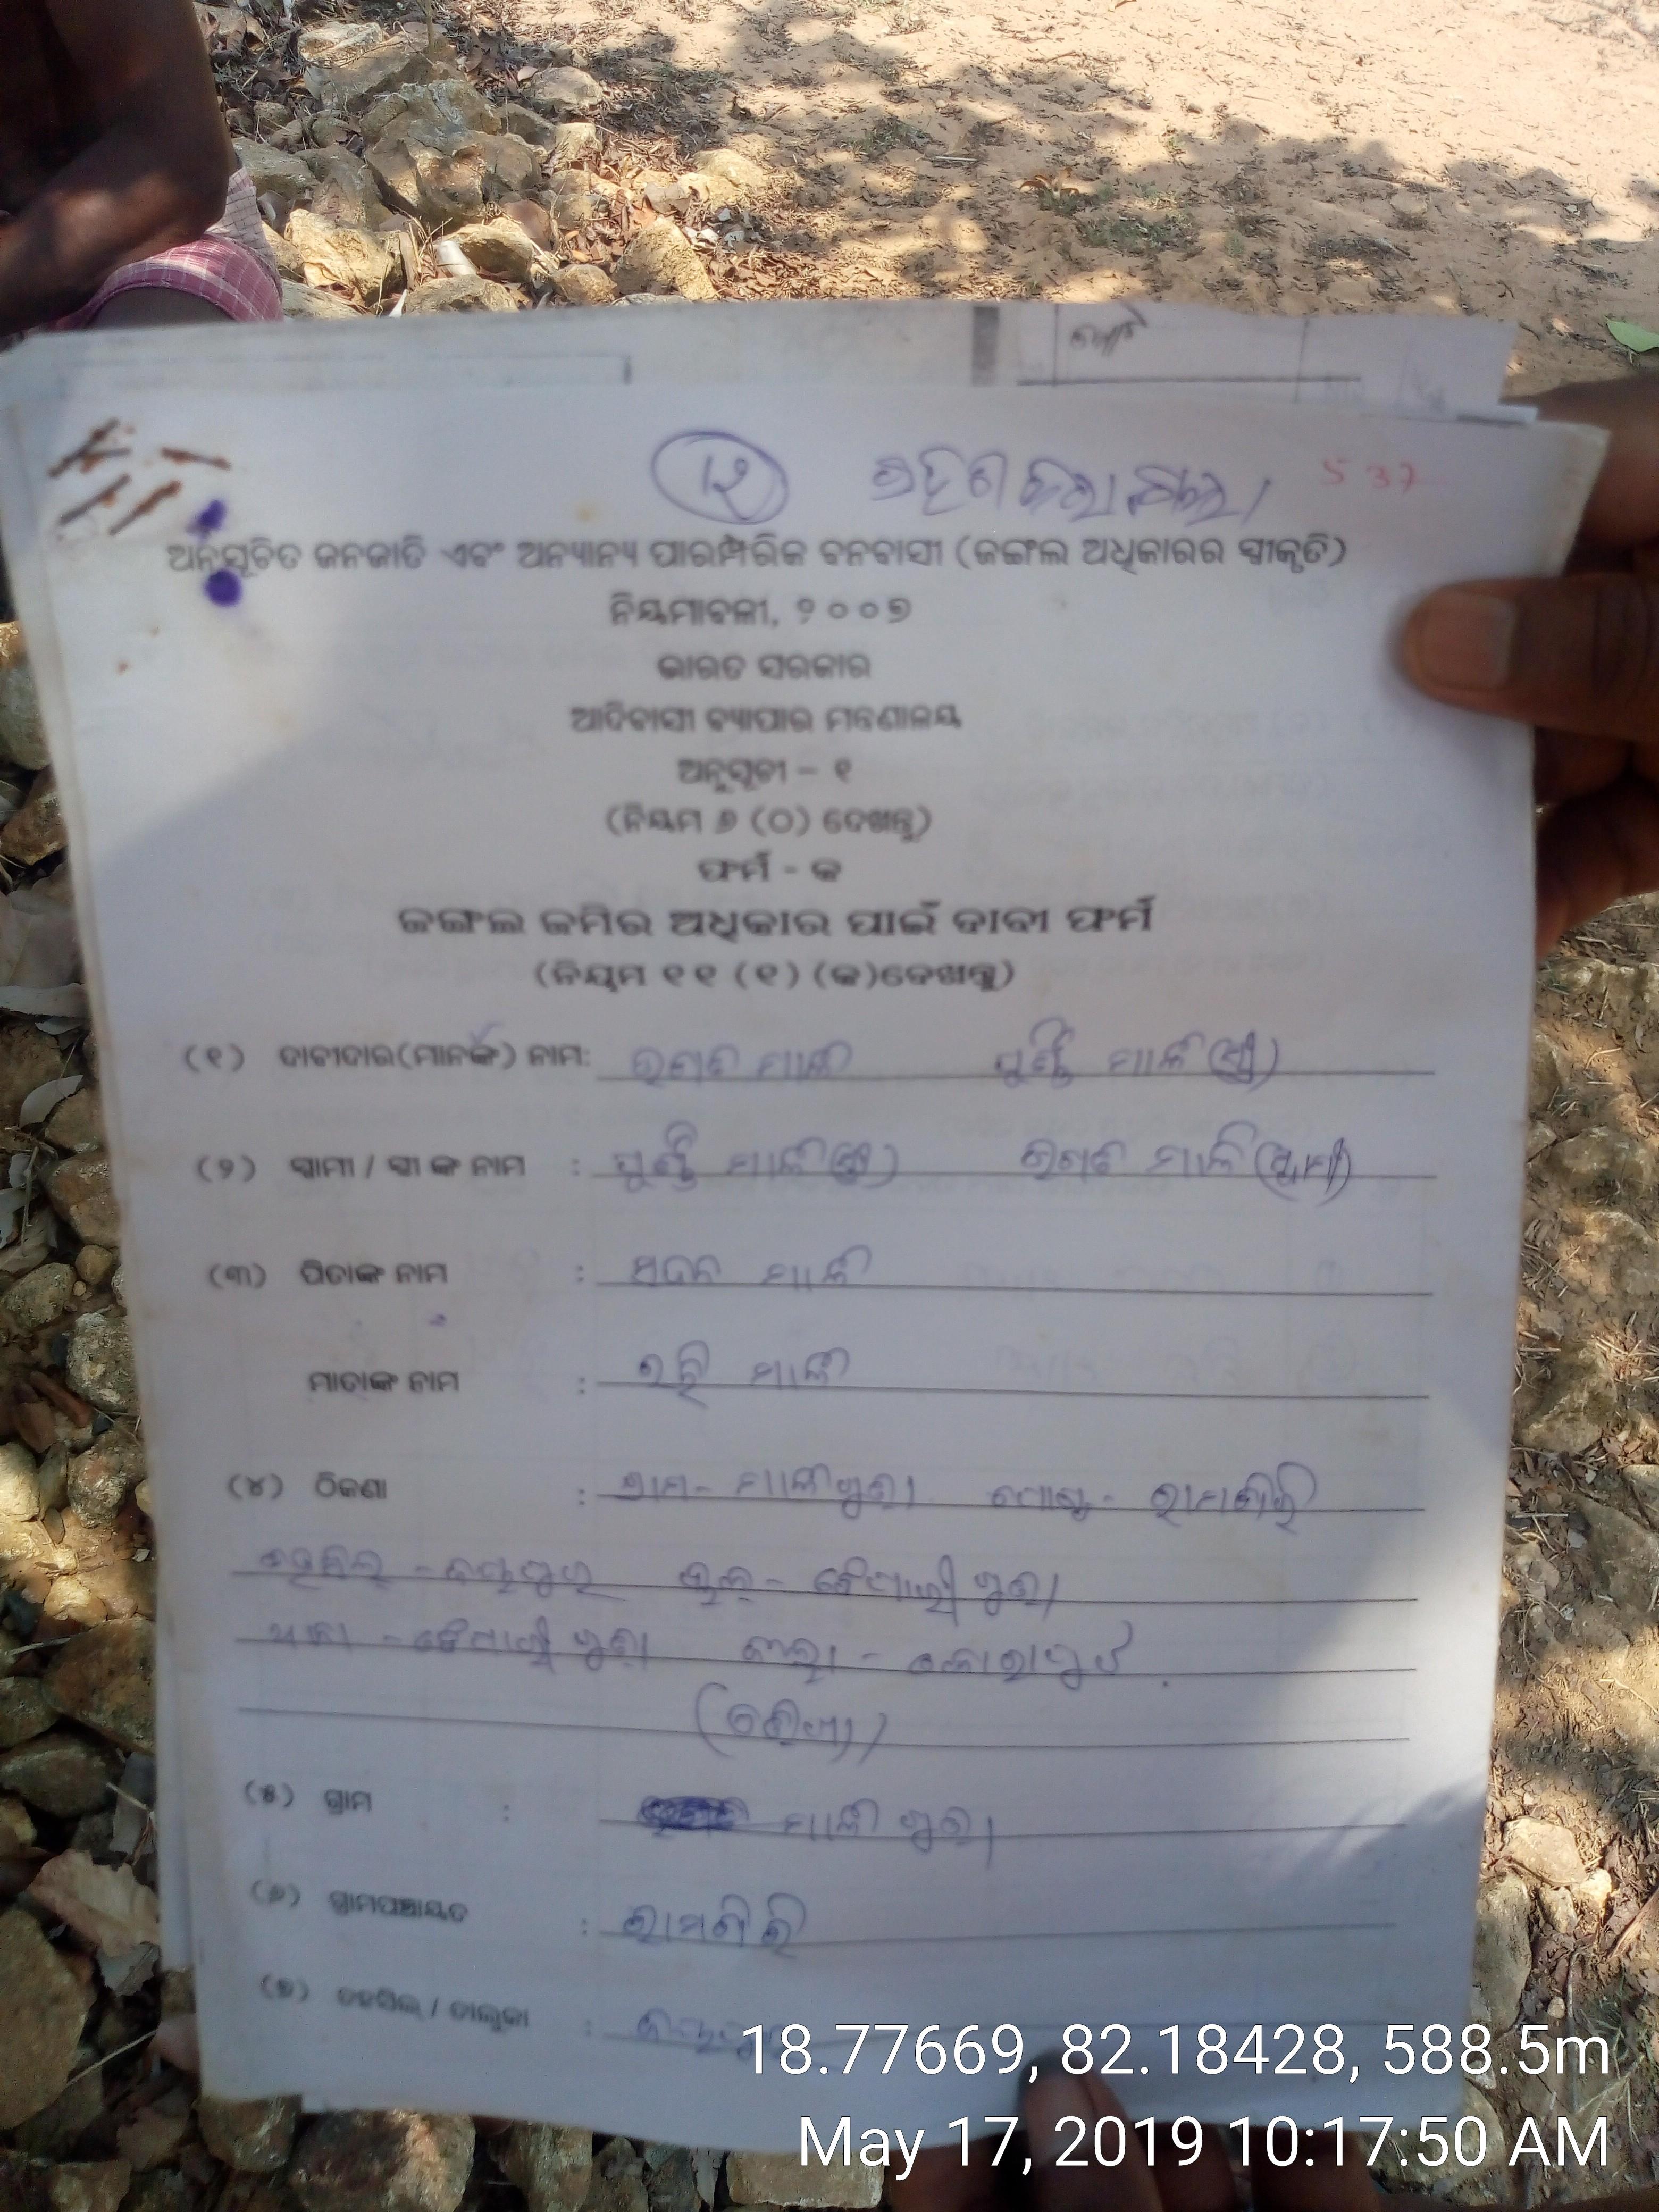 (୧୨) ଗ୍ରହଣ କରାଗଲା 537
ଅନୁସୂଚିତ ଜନଜାତି ଏବଂ ଅନ୍ୟାନ୍ୟ ପାରମ୍ପରିକ ବନବାସୀ (ଜଙ୍ଗଲ ଅଧିକାରର ସ୍ୱୀକୃତି)
ନିୟମାବଳୀ, ୨୦୦୭
ଭାରତ ସରକାର
ଆଦିବାସୀ ବ୍ୟାପାର ମନ୍ତ୍ରଣାଳୟ
ଅନୁସୂଚୀ – ୧
(ନିୟମ ୬ (ଠ) ଦେଖନ୍ତୁ)
ଫର୍ମ - କ
ଜଙ୍ଗଲ ଜମିର ଅଧିକାର ପାଇଁ ଦାବୀ ଫର୍ମ
(ନିୟମ ୧୧ (୧) (କ)ଦେଖନ୍ତୁ)
(୧) ଦାବୀଦାର(ମାନଙ୍କ) ନାମ: ମାଳୀ ମାଳି (ସ୍ତ୍ରୀ)
(୨) ସ୍ୱାମୀ / ସ୍ତ୍ରୀ ଙ୍କ ନାମ : ମାଳି (ସ୍ତ୍ରୀ) ମାଳି (ସ୍ୱାମୀ)
(୩) ପିତାଙ୍କ ନାମ : ମାଳୀ
ମାତାଙ୍କ ନାମ : ମାଳୀ
(୪) ଠିକଣା : ଗ୍ରାମ- ମାଳୀଗୁଡା ପୋଷ୍ଟ- ରାମଗିରି
ଜୟପୁର ବ୍ଲକ୍ - ବୈପାରୀଗୁଡା
ଥାନା - ବୈପାରୀଗୁଡା ଜିଲ୍ଲା - କୋରାପୁଟ
(ଓଡିଶା)
(୫) ଗ୍ରାମ : ମାଳୀଗୁଡା
(୬) ଗ୍ରାମପଞ୍ଚାୟତ : ରାମଗିରି
(୭) ତହସିଲ୍ / ତାଲୁକା : ଜୟପୁର
18.77669, 82.18428, 588.5m
May 17, 2019 10:17:50 AM